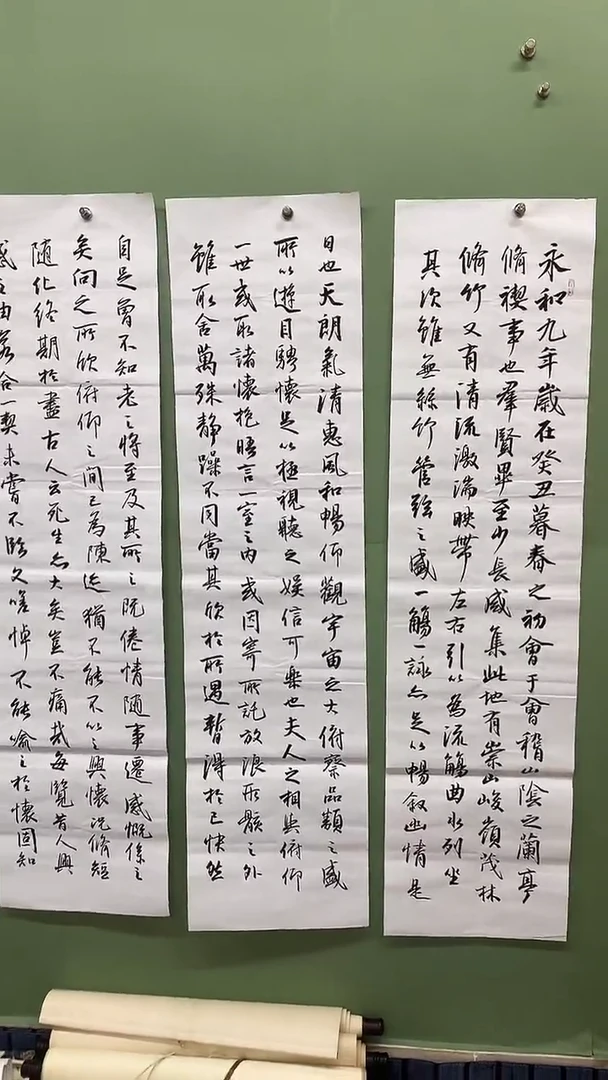 永和九年歲在癸丑暮春之初會于會稽山陰之蘭亭
脩禊事也羣賢畢至少長咸集此地有崇山峻嶺茂林
脩竹又有清流激湍映帶左右引以為流觴曲水列坐
其次雖無絲竹管弦之盛一觴一詠亦足以暢叙幽情是
日也天朗氣清惠風和暢仰觀宇宙之大俯察品類之盛
所以遊目騁懷足以極視聽之娱信可樂也夫人之相與俯仰
一世或取諸懷抱晤言一室之内或因寄所託放浪形骸之外
雖取舍萬殊静躁不同當其欣於所遇暫得於己快然
自足曾不知老之將至及其所之既倦情隨事遷感慨係之
矣向之所欣俯仰之間已為陳迹猶不能不以之興懷況脩短
隨化終期於盡古人云死生亦大矣豈不痛哉每覽昔人興
感之由若合一契未嘗不臨文嗟悼不能喻之於懷固知